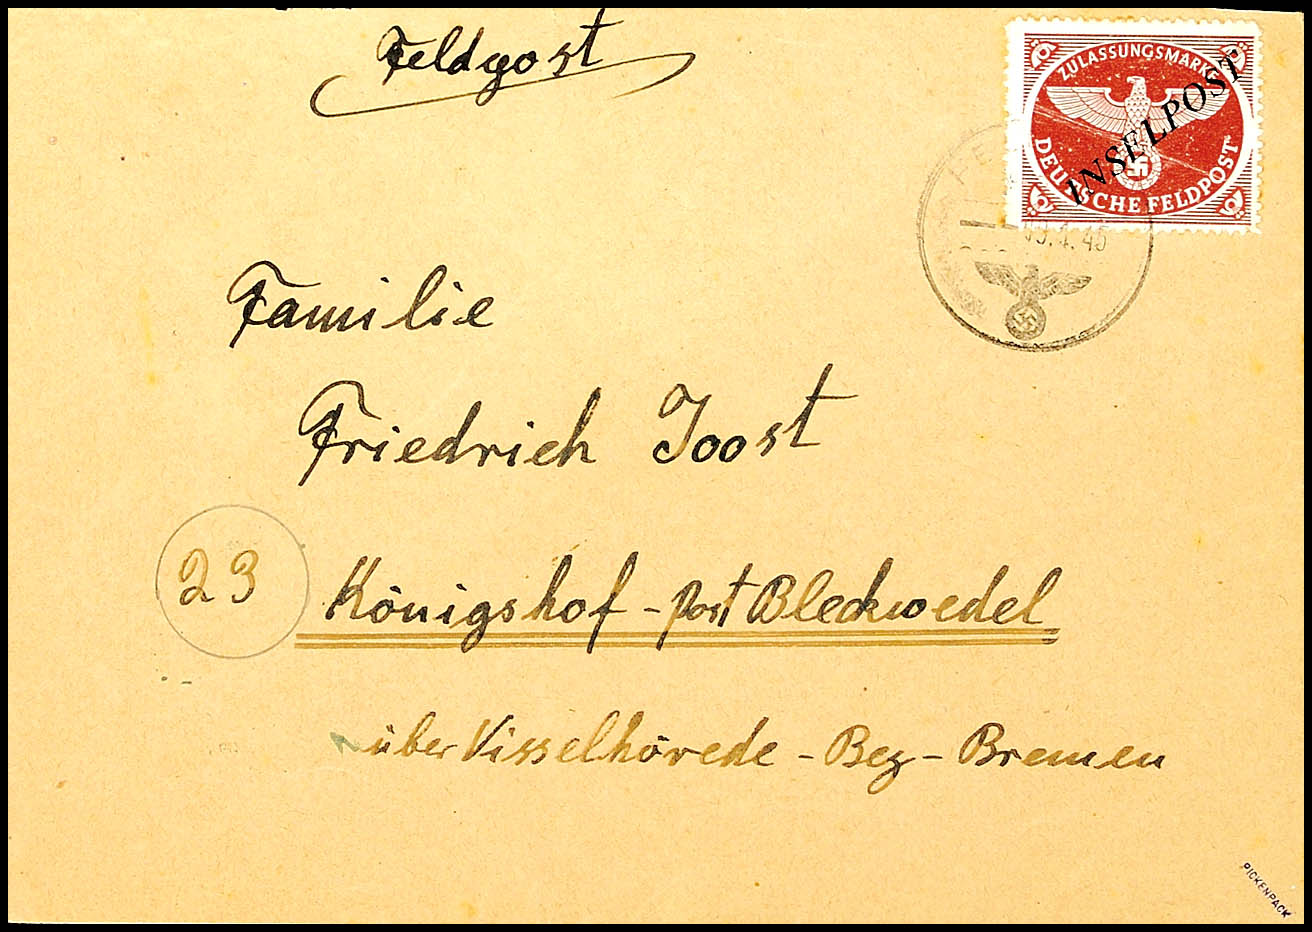 Feldpost
ZULASSUNGSMARKE
INSELPOST
DEUTSCHE FELDPOST
4.45
Familie
Friedrich Joost
23 Königshof - Post Bleckwedel
über Visselhövede - Bez - Bremen
PICKENPACK